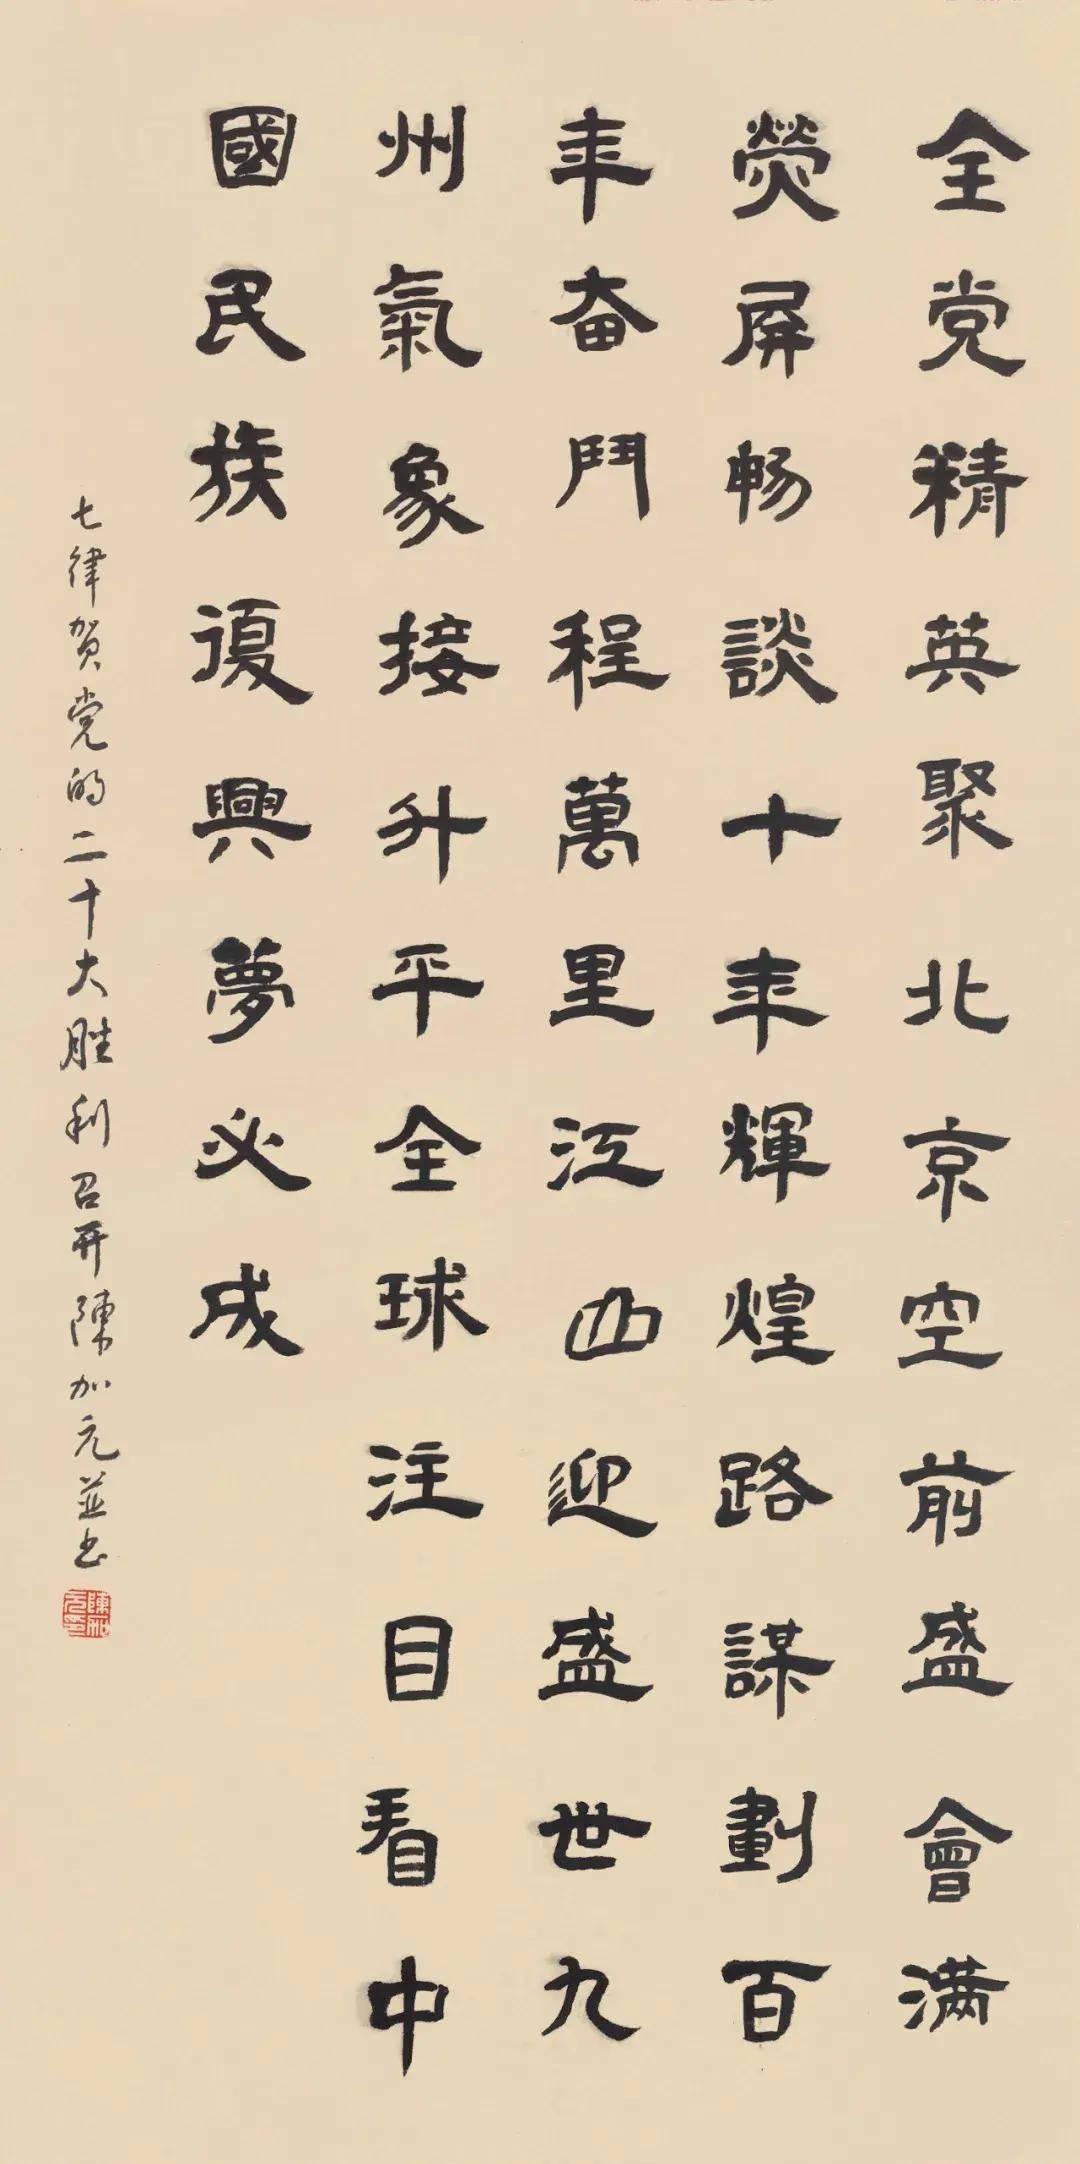 全党精英聚北京空前盛會满
熒屏畅談十年輝煌路謀劃百
年奋鬥程萬里江山迎盛世九
州氣象接升平全球注目看中
國民族復興夢必成
七律贺党的二十大胜利召开陳加元並书
陳加元印